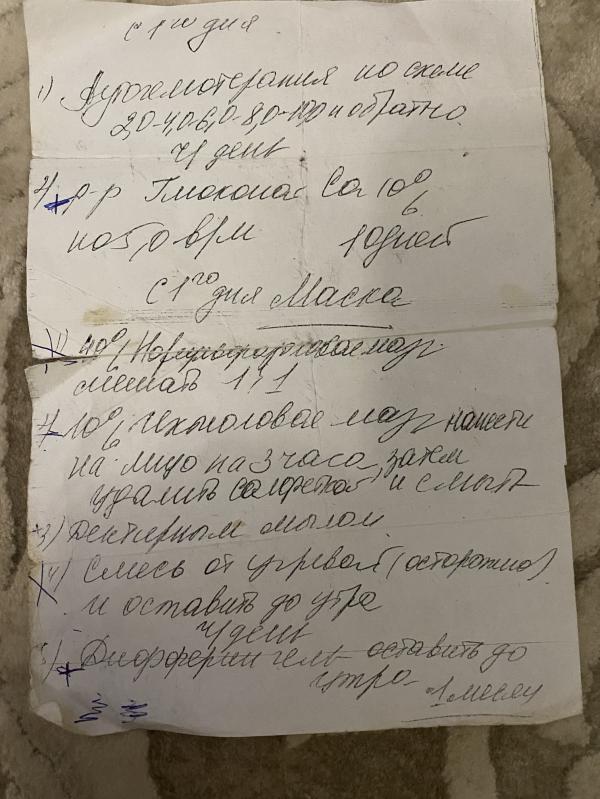 с 1го дня
1) Аутогемотерапия по схеме
2,0-4,0-6,0-8,0-10,0 и обратно
ч/ день
2) р-р Глюконат Са 10%
по 5,0 в/м 10 дней
с 1го дня Маска
1) 40% мазь
смешать 1:1
2) 10% Ихтиоловая мазь нанести
на лицо на 3 часа, затем
удалить салфеткой и смыть
3) Дегтярным мылом
4) Смесь от угревой (осторожно)
и оставить до утра
ч/ день
5) Дифферин гель оставить до
утра 1 месяц